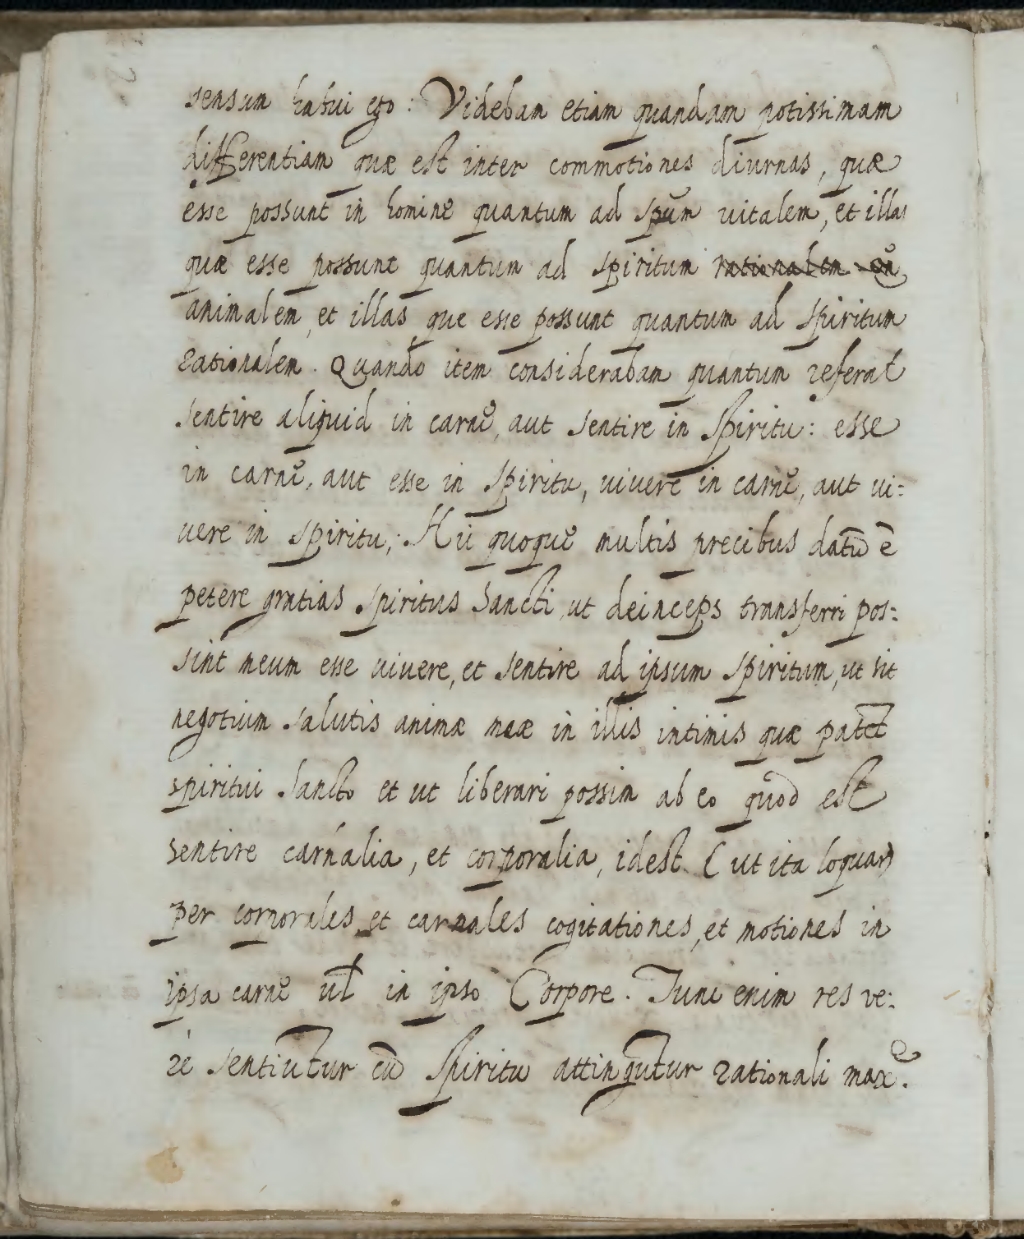 sensum habui ego: Videbam etiam quandam potissimam
differentiam quæ est inter commotiones diurnas, quæ
esse possunt in homine quantum ad spũm uitalem, et illas
quæ esse possunt quantum ad spiritum rationalem
animalem, et illas que esse possunt quantum ad spiritum
rationalem. Quando item considerabam quantum referat
sentire aliquid in carne, aut sentire in spiritu: esse
in carne, aut esse in spiritu, uiuere in carne, aut ui:
uere in spiritu; Hic quoque multis precibus datũ ẽ
petere gratias spiritus Sancti, ut deinceps transferri pos:
sint meum esse uiuere, et sentire ad ipsum spiritum, ut sit
negotium salutis animæ meæ in illis intimis quæ patẽt
spiritui Sancto et ut liberari possim ab eo quod est
sentire carnalia, et corporalia, idest (ut ita loquar)
per corporeles et carnales cogitationes, et motiones in
ipsa carne ul̃ in ipso Corpore. Tunc enim res ve:
re sentiũtur cũ spiritu attingũtur rationali maxẽ.